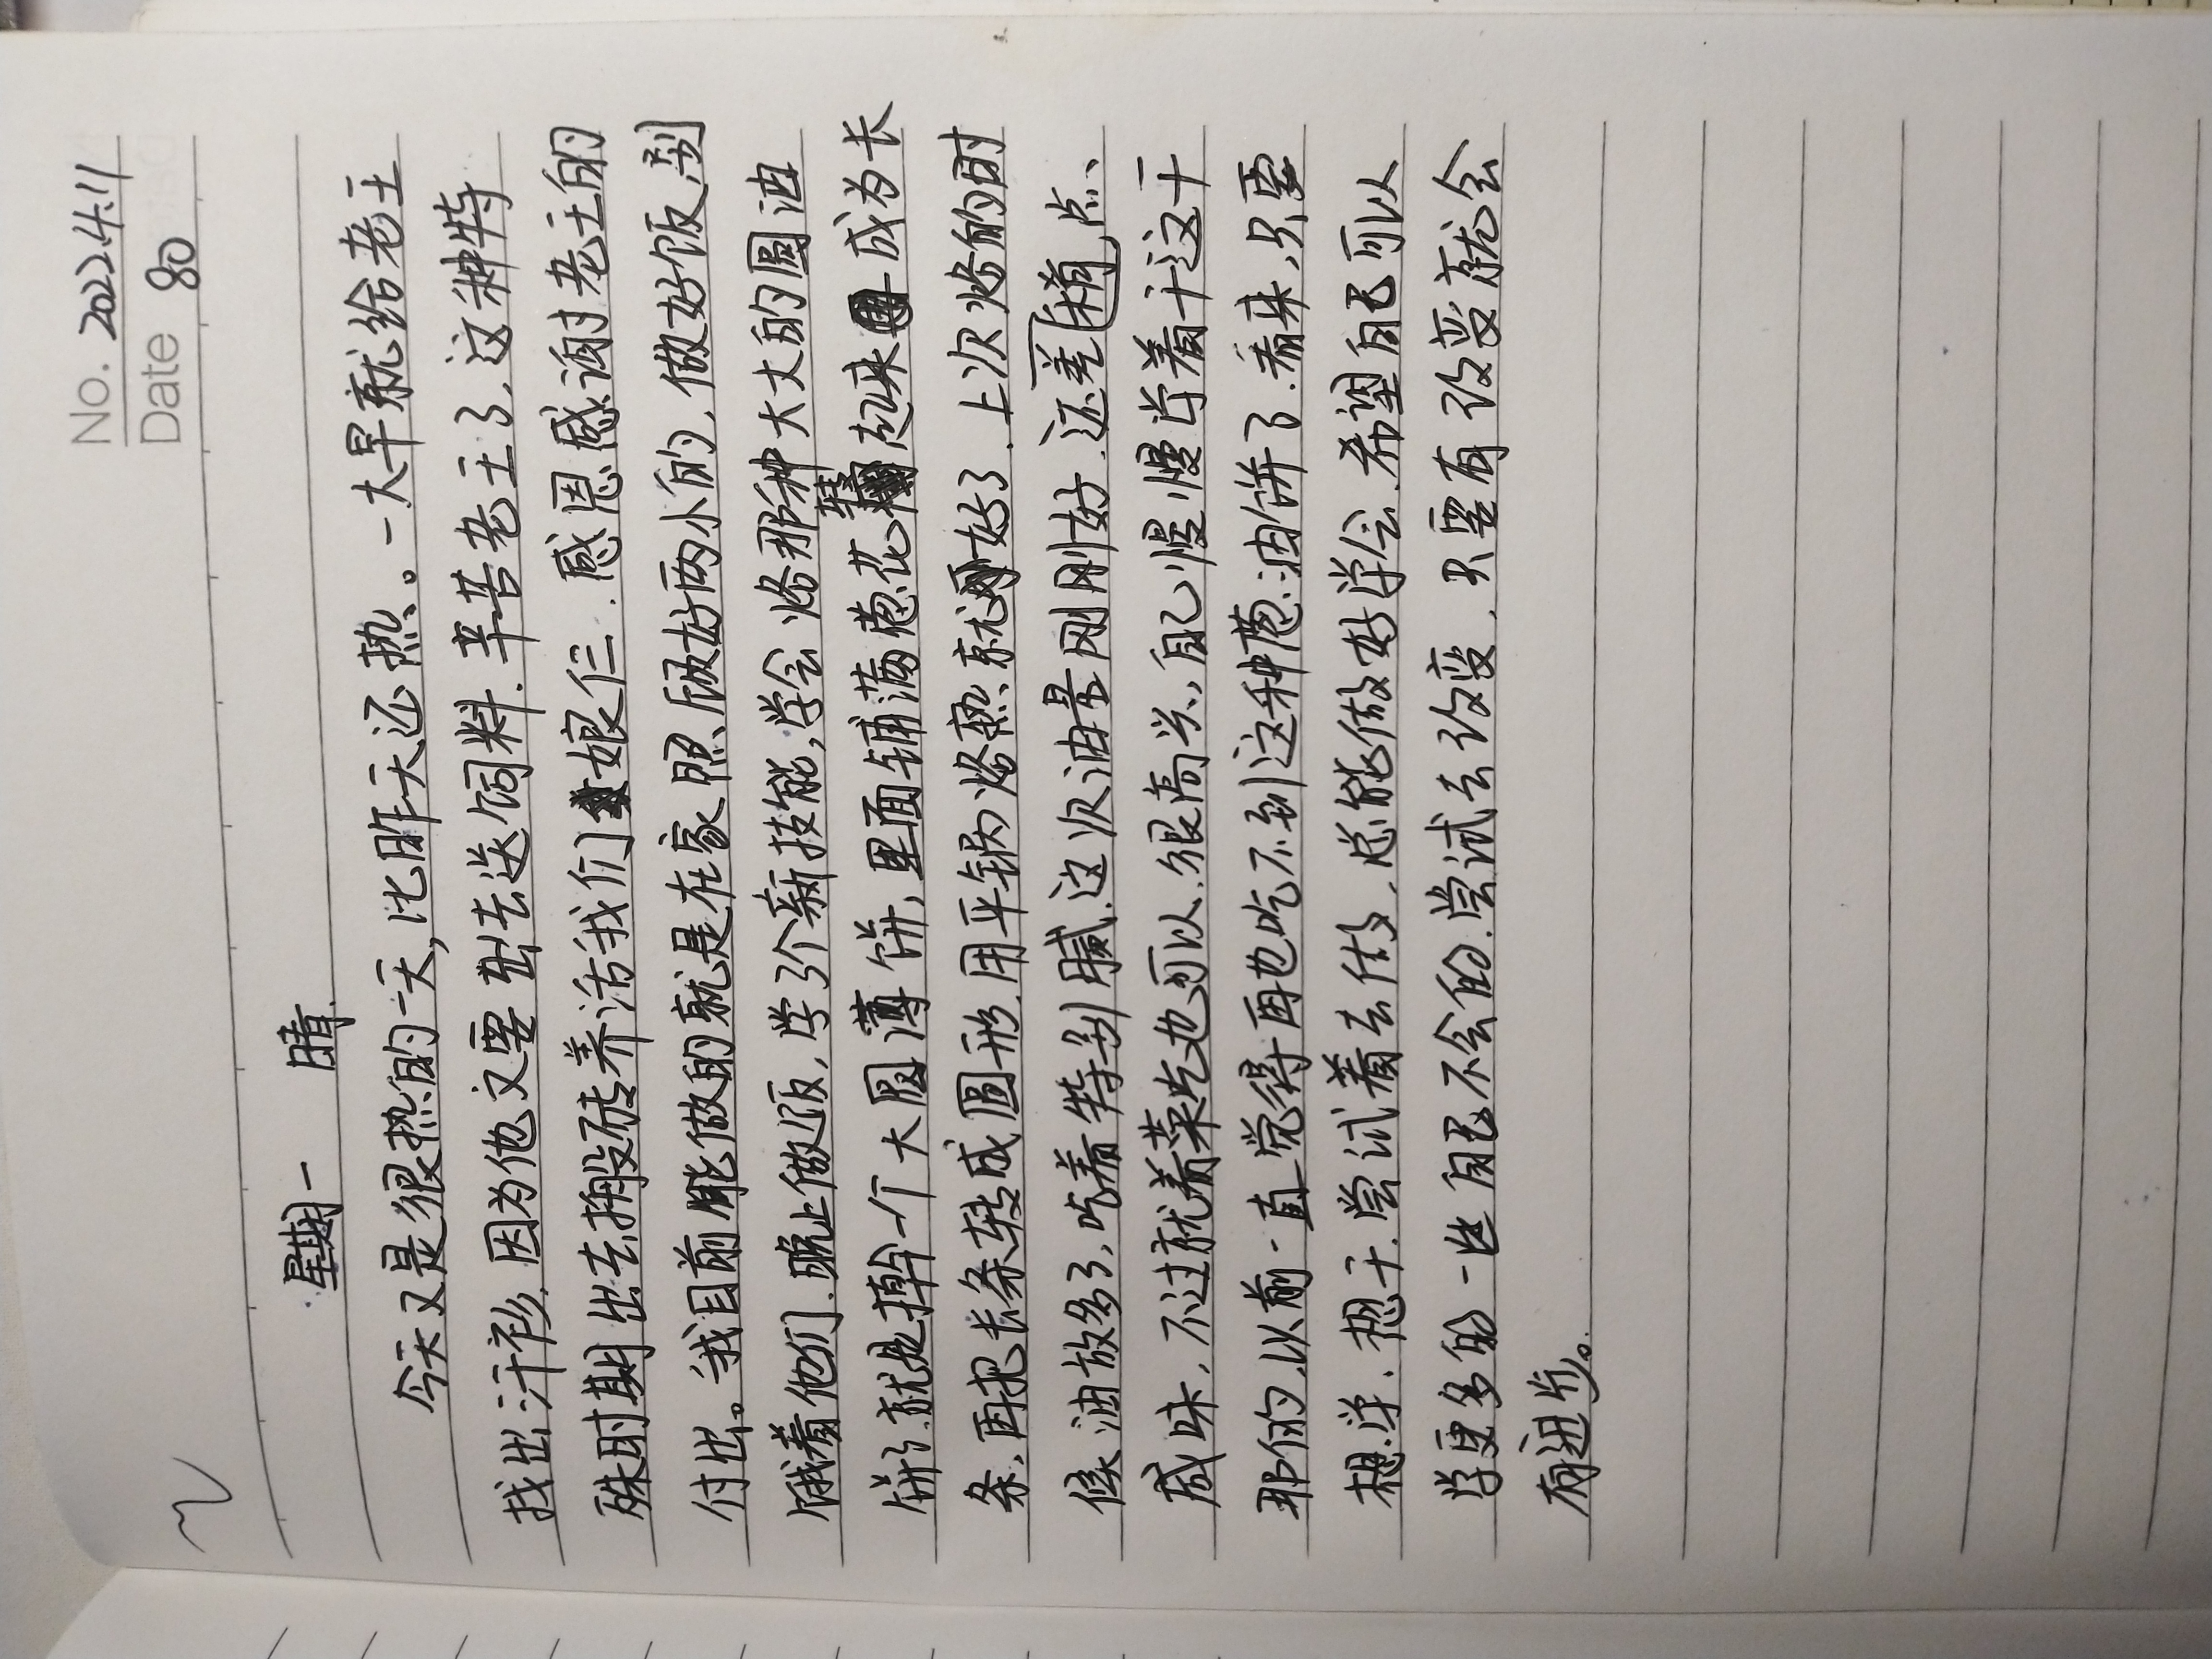 No. 2022.4.11
Date 80
星期一 晴
今天又是很热的一天,比昨天还热。一大早就给老王
找出汗衫,因为他又要出去送饲料.辛苦老王了.这种特
殊时期出去搬砖养活我们娘仨.感恩感谢老王的
付出。我目前能做的就是在家照顾好两小的,做好饭,别
饿着他们.晚上做饭,学了个新技能,学会烙那种大大的圆油
饼了就是擀一个大圆薄饼,里面铺满葱花卷起来成为长
条,再把长条转成圆形.用平锅烙熟就好了.上次烙的时
候油放多了,吃着特别腻.这次油量刚刚好.还差稍点、
咸味,不过就着菜吃也可以.很高兴,自己慢慢学着干这干
那的,以前一直觉得再也吃不到这种葱油饼了.看来,只要
想学.想干.尝试着去做,总能做好学会.希望自己可以
学更多的一些自己不会的.尝试去改变,只要有改变就会
有进步。